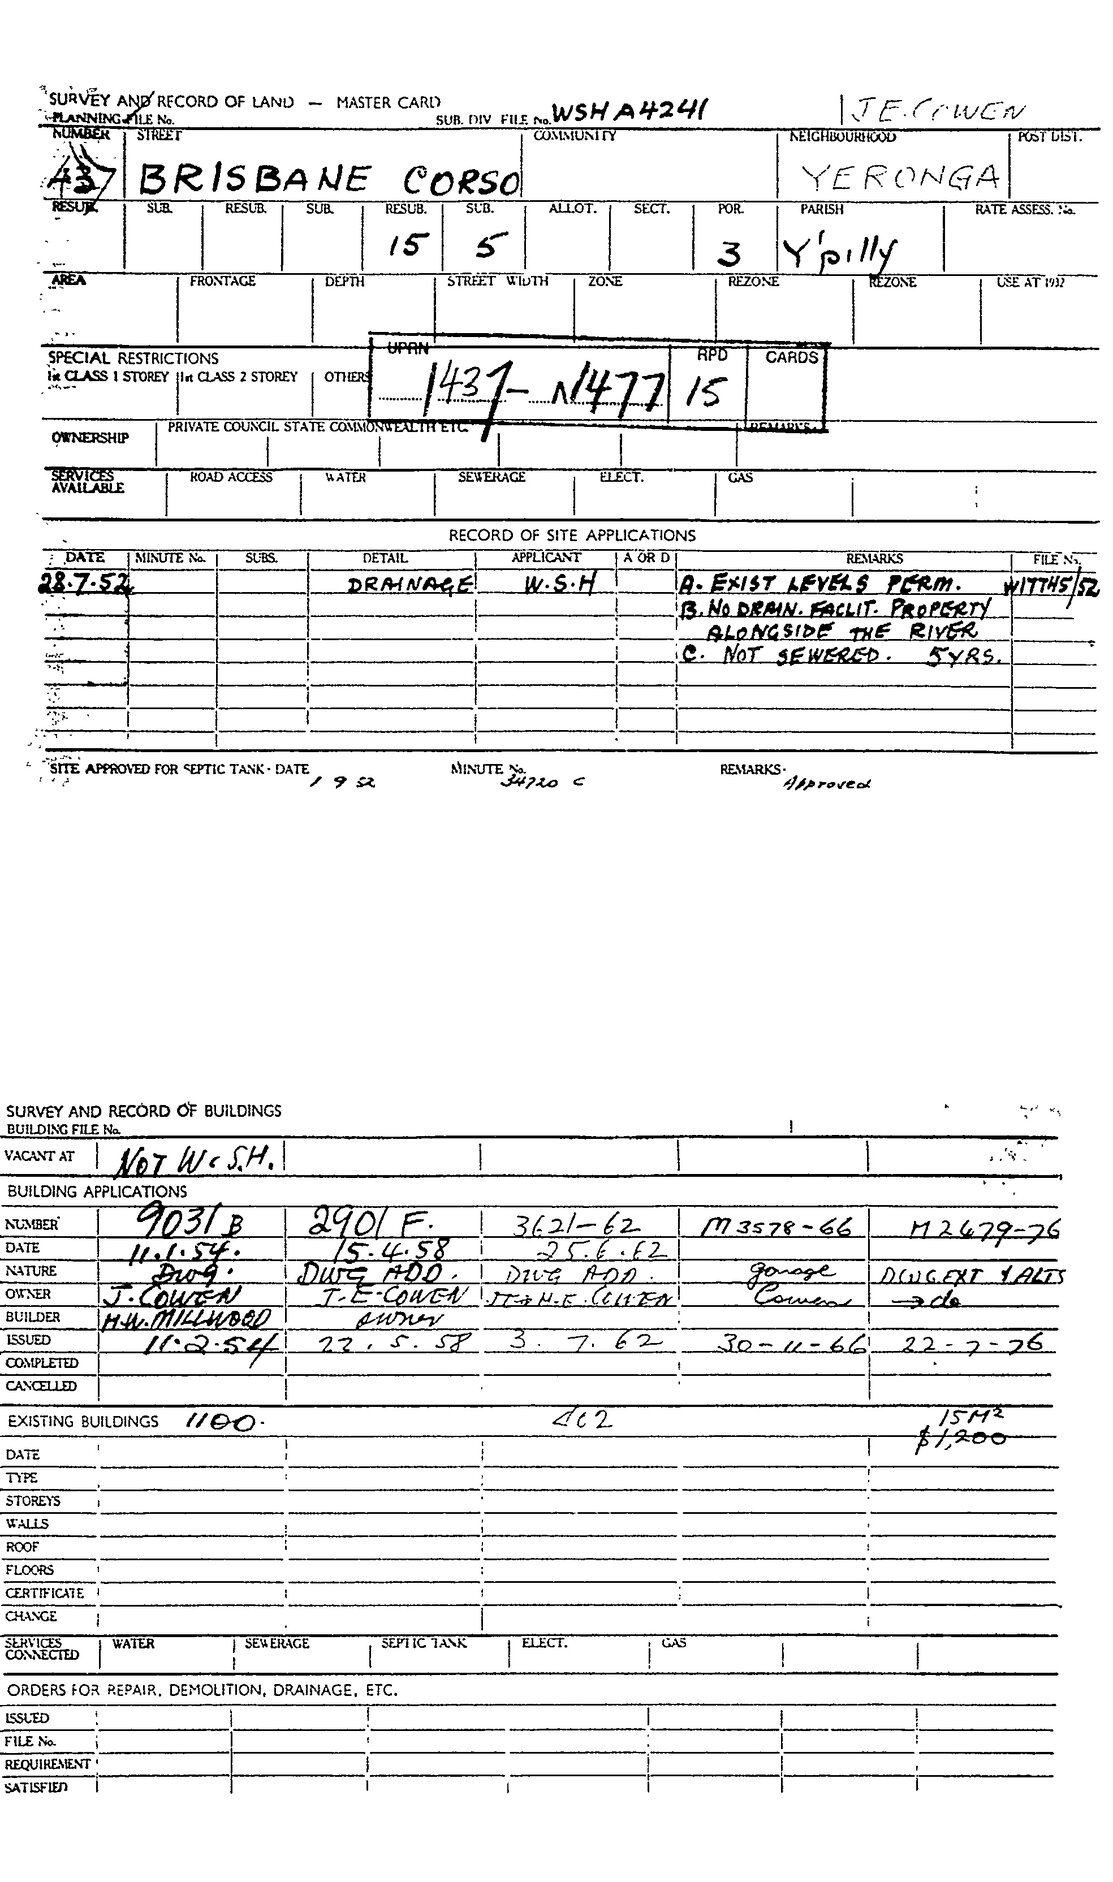 SURVEY AND RECORD OF LAND — MASTER CARD
PLANNING FILE No. SUB. DIV. FILE No. WSH A4241 J.E. COWEN
NUMBER STREET COMMUNITY NEIGHBOURHOOD POST DIST.
437 BRISBANE CORSO YERONGA
RESUB. SUB. RESUB. SUB. RESUB. SUB. ALLOT. SECT. POR. PARISH RATE ASSESS. No.
15 5 3 Y'pilly
AREA FRONTAGE DEPTH STREET WIDTH ZONE REZONE REZONE USE AT 1932
SPECIAL RESTRICTIONS UPRN RPD CARDS
1st CLASS 1 STOREY 1st CLASS 2 STOREY OTHERS 1437 - N1477 15
OWNERSHIP PRIVATE COUNCIL STATE COMMONWEALTH ETC. REMARKS.
SERVICES AVAILABLE ROAD ACCESS WATER SEWERAGE ELECT. GAS
RECORD OF SITE APPLICATIONS
DATE MINUTE No. SUBS. DETAIL APPLICANT A OR D REMARKS FILE No.
28.7.52 DRAINAGE W.S.H A. EXIST LEVELS PERM. W177H5/52
B. NO DRAIN. FACLIT. PROPERTY
ALONGSIDE THE RIVER
C. NOT SEWERED. 5 YRS.
SITE APPROVED FOR SEPTIC TANK - DATE 1 9 52 MINUTE No. 34720 C REMARKS - Approved
SURVEY AND RECORD OF BUILDINGS
BUILDING FILE No.
VACANT AT NOT W.S.H.
BUILDING APPLICATIONS
NUMBER 9031 B 2901 F. 3621-62 M3578-66 M2679-76
DATE 11.1.54. 15.4.58 25.6.62
NATURE Dwg. DWG ADD. DWG ADD. garage DWG.EXT & ALTS
OWNER J. COWEN J.E. COWEN JE & H.E. COWEN Cowen → do
BUILDER H.W. MILLWOOD owner
ISSUED 11.2.54 22.5.58 3.7.62 30-11-66 22-7-76
COMPLETED
CANCELLED
EXISTING BUILDINGS 1100. 15M²
$1,200
DATE
TYPE
STOREYS
WALLS
ROOF
FLOORS
CERTIFICATE
CHANGE
SERVICES CONNECTED WATER SEWERAGE SEPTIC TANK ELECT. GAS
ORDERS FOR REPAIR, DEMOLITION, DRAINAGE, ETC.
ISSUED
FILE No.
REQUIREMENT
SATISFIED